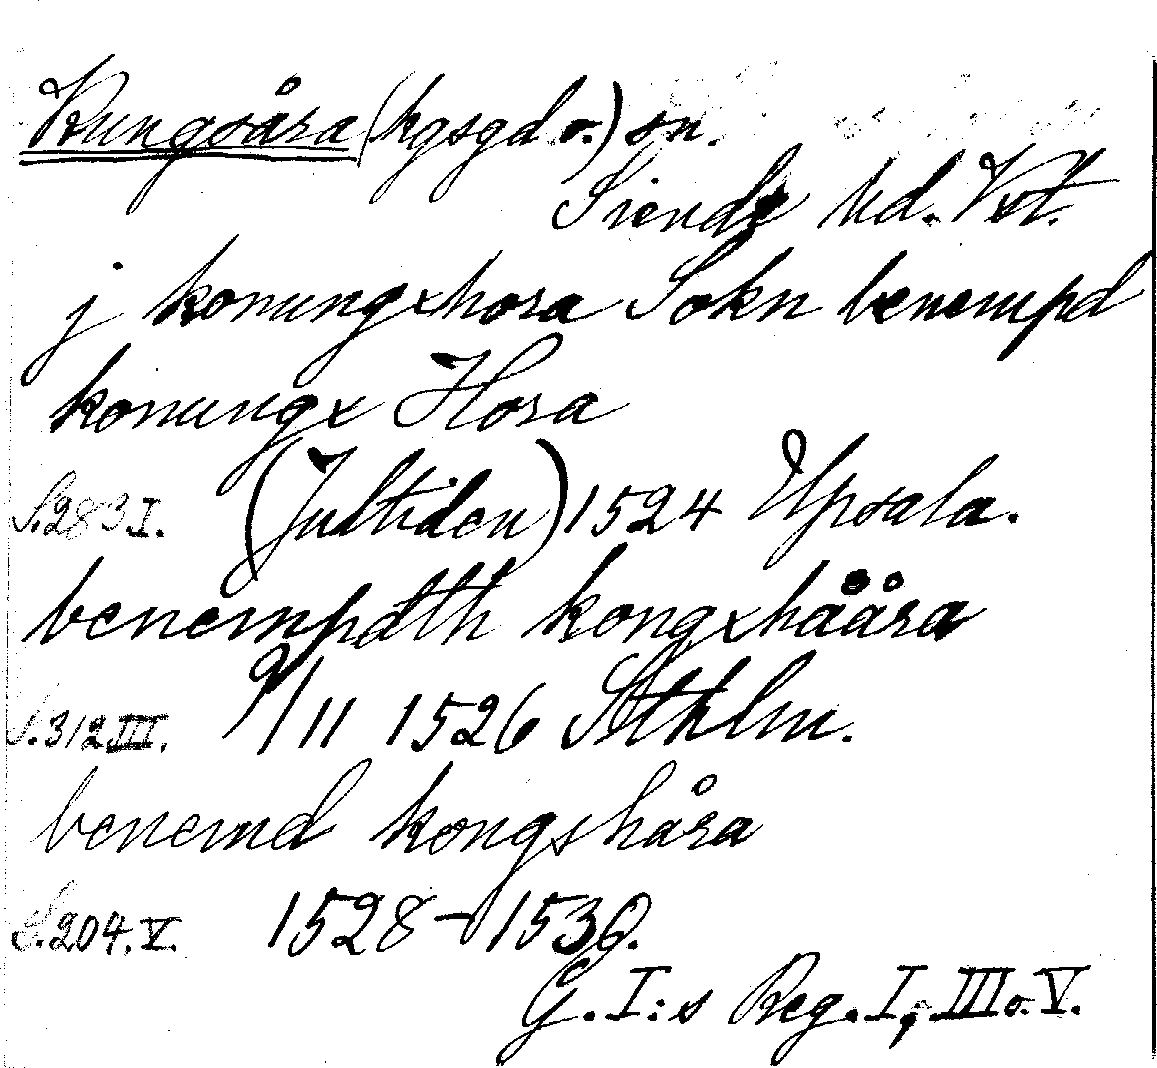 Kungsåra (kgsgd o.) sn.
Siende hd. Vst.
j konungxhora Sokn benempd
konungx Hora
S.283 I. (Jultiden) 1524 Upsala.
benempdth kongxhååra
S.312 III. 9/11 1526 Sthlm.
benemd kongshåra
S.204. V. 1528-1530.
G. I:s Reg. I, III o. V.